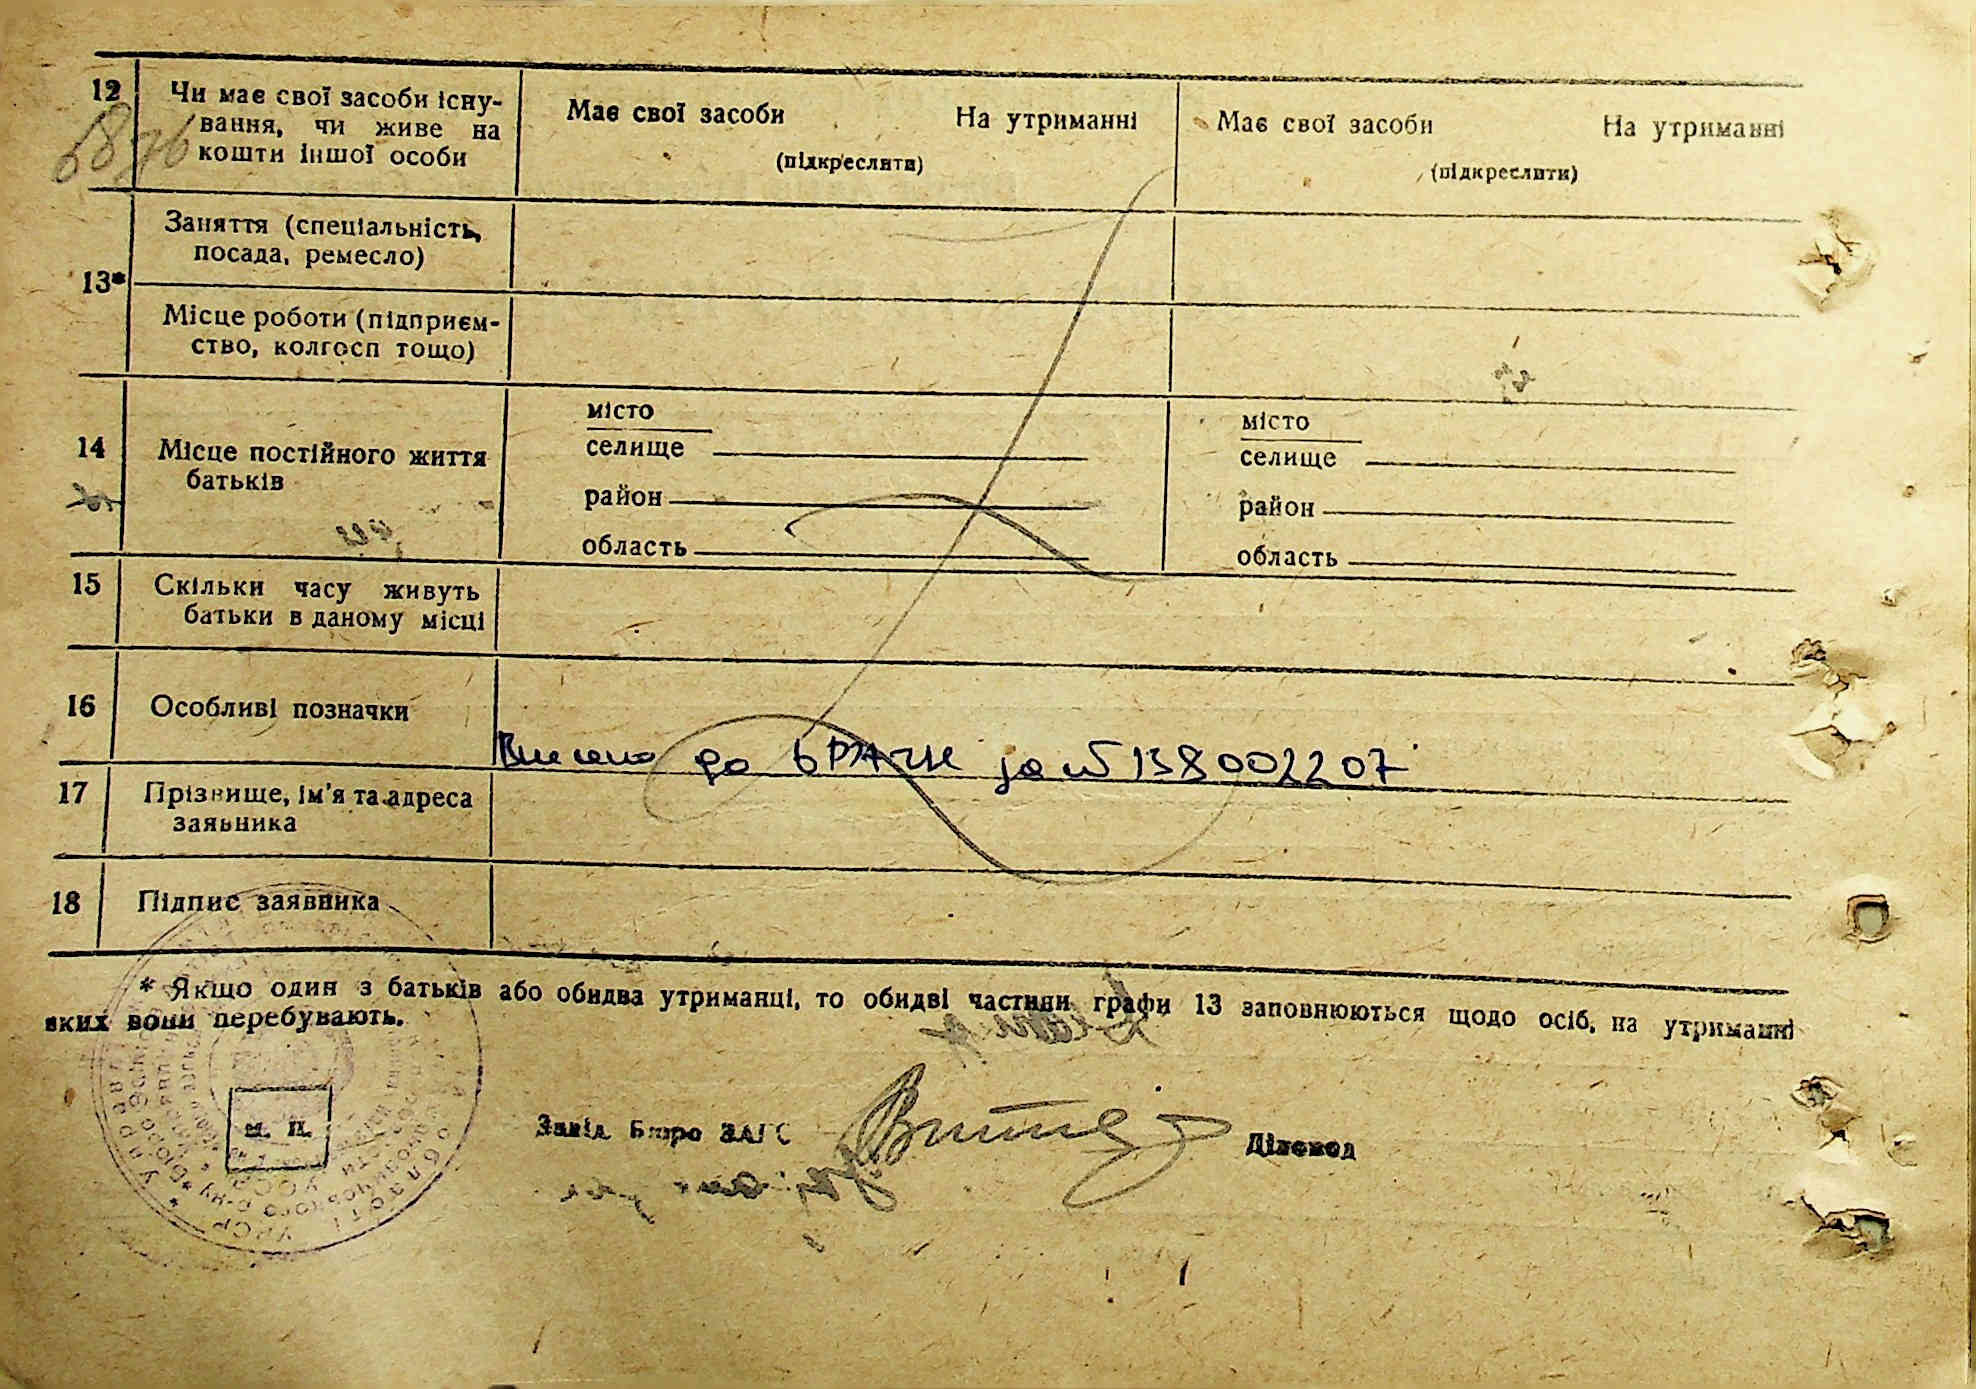 12
Чи має свої засоби існу-
вання, чи живе на
кошти іншої особи
Має свої засоби На утриманні
(підкреслити)
Має свої засоби На утриманні
(підкреслити)
6876
13*
Заняття (спеціальність,
посада, ремесло)
Місце роботи (підприєм-
ство, колгосп тощо)
14
Місце постійного життя
батьків
місто
селище
район
область
місто
селище
район
область
15
Скільки часу живуть
батьки в даному місці
16
Особливі позначки
Внесено до ЬРАЦС за № 138002207
17
Прізвище, ім'я та адреса
заявника
18
Підпис заявника
* Якщо один з батьків або обидва утриманці, то обидві частини графи 13 заповнюються щодо осіб, на утриманні
яких вони перебувають.
М. П.
Завід. Бюро ЗАГС
Діловод